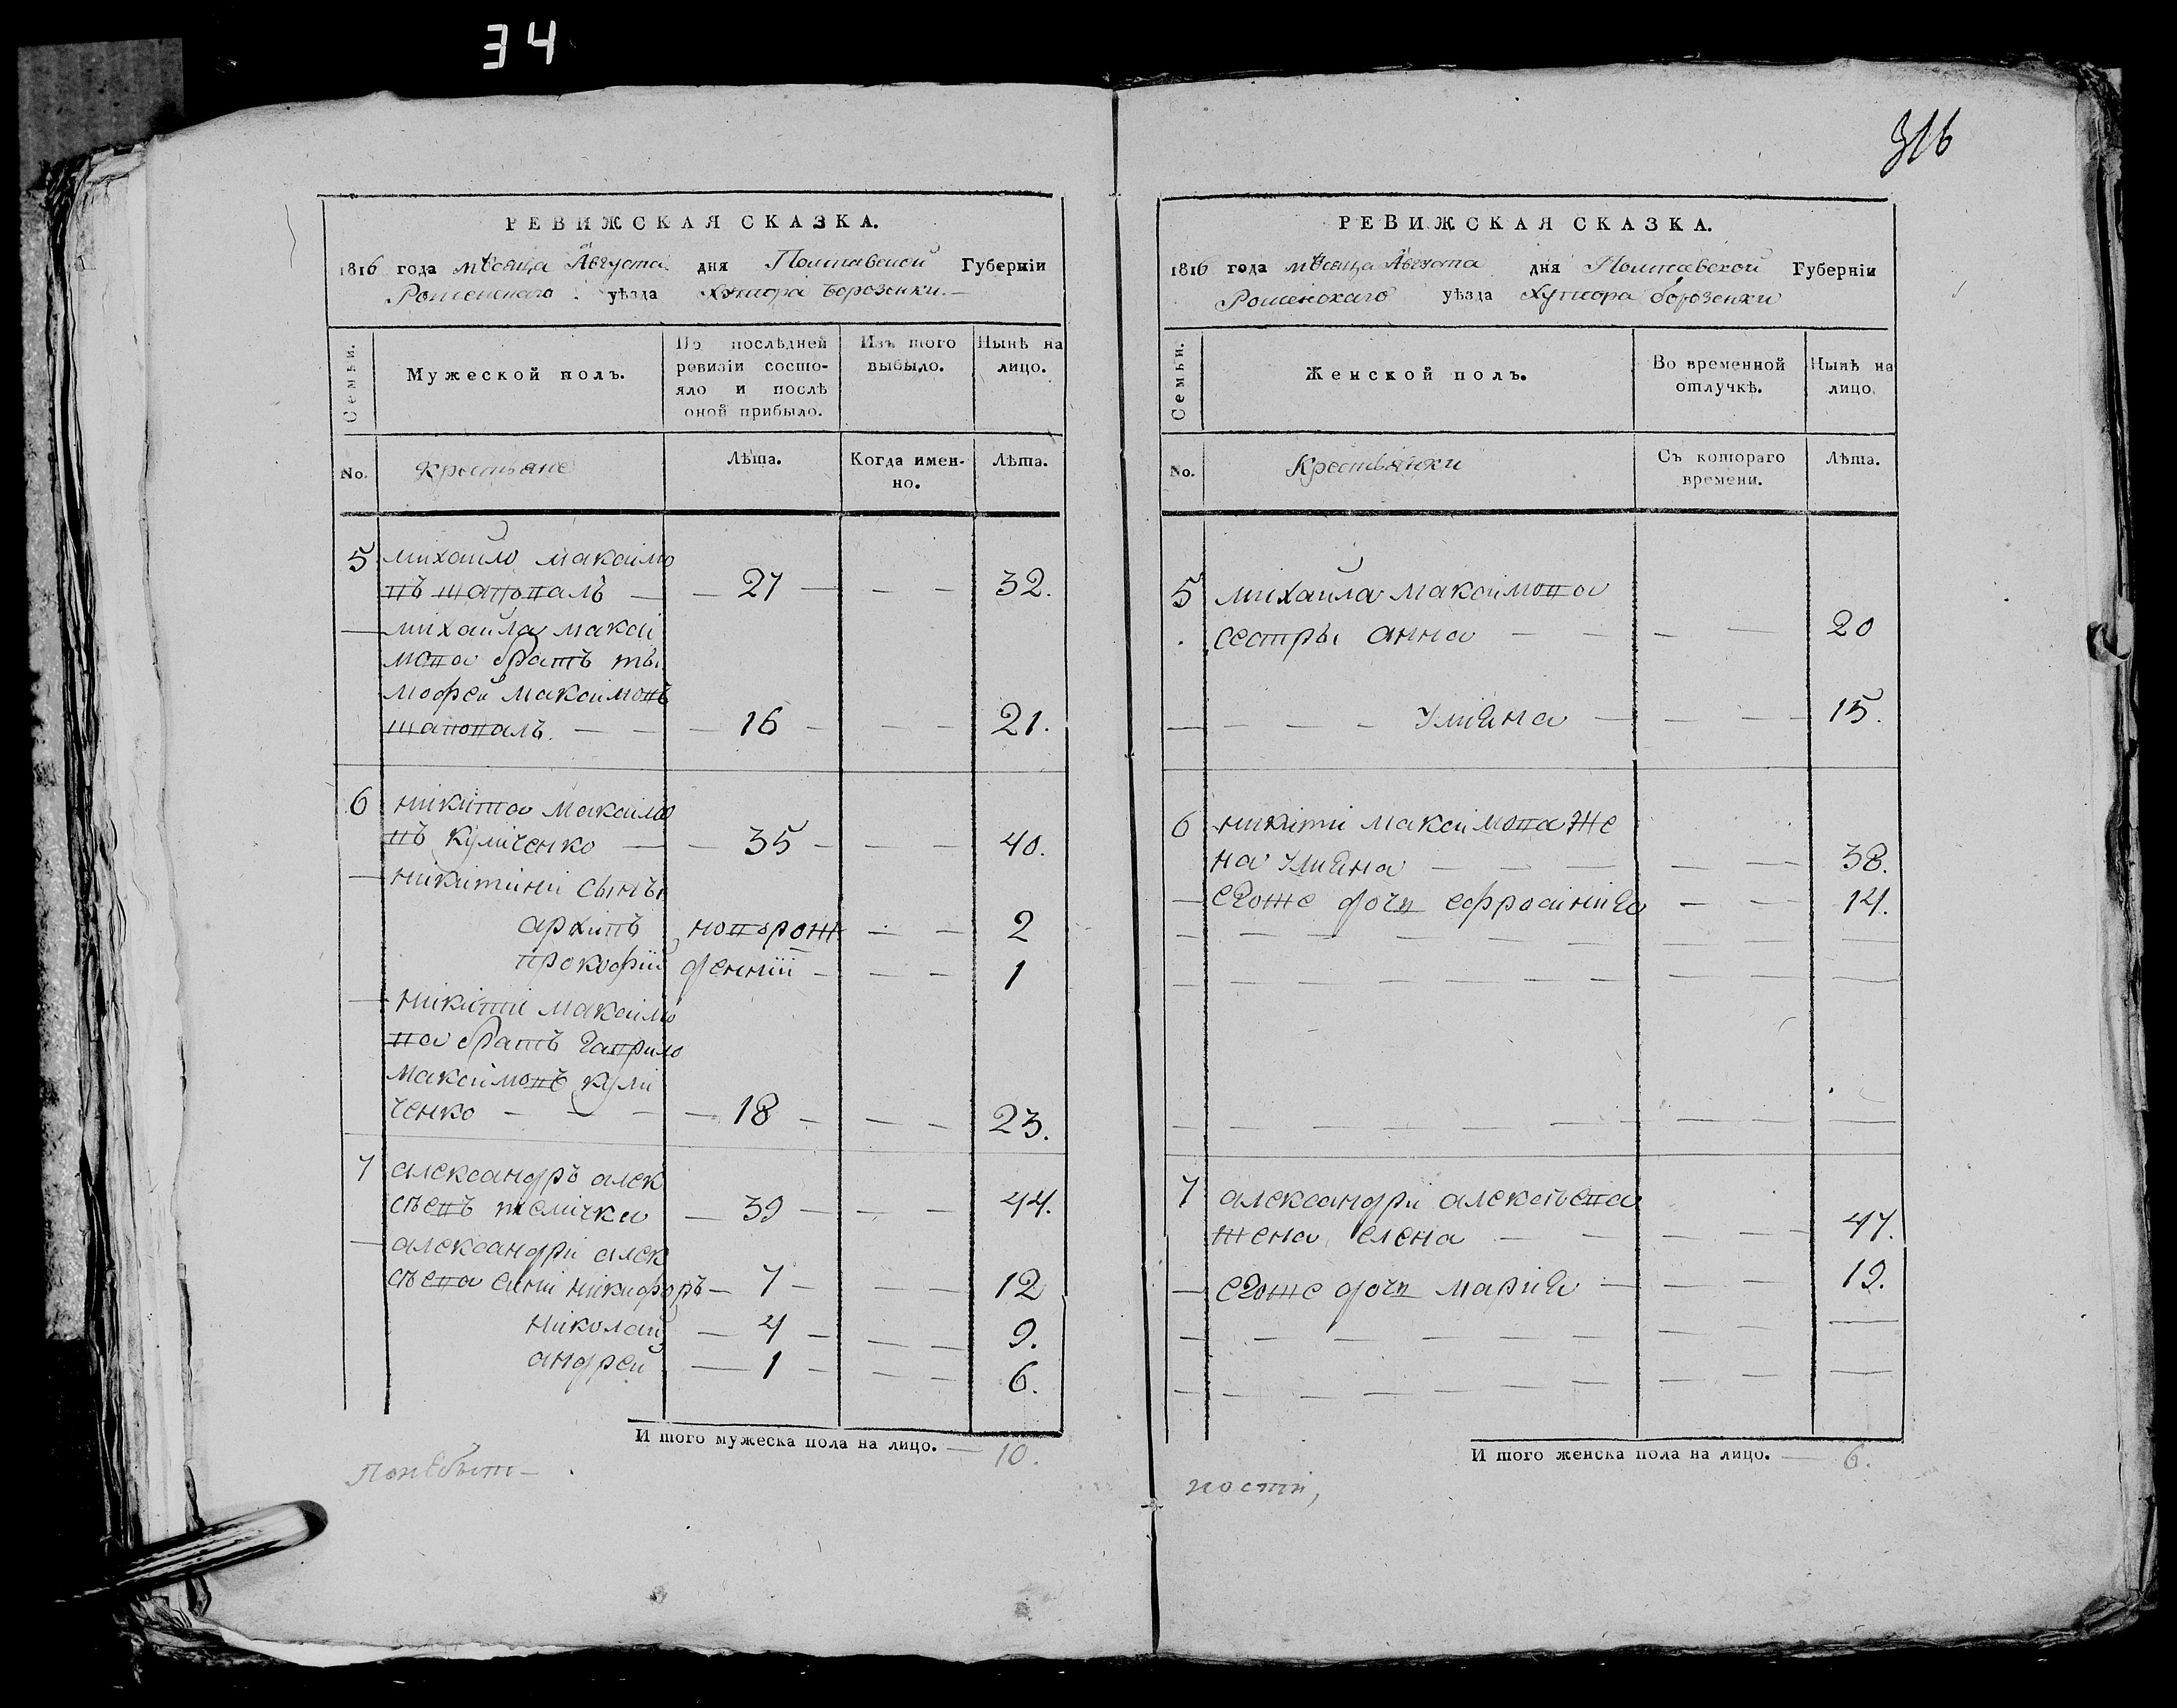 34
316
РЕВИЖСКАЯ СКАЗКА.
1816 года мѣсяца Августа дня Полтавской Губерніи
Роменскаго уѣзда Хутора Борозенки.
Семьи.
Мужеской полъ.
По послѣдней ревизіи состояло и послѣ оной прибыло.
Изъ того выбыло.
Нынѣ на лицо.
No.
Крестьяне
Лѣта.
Когда именно.
Лѣта.
5 михайло максимо
въ шаповалъ — 27 — 32.
михайла макси
мова братъ ти
мофей максимовъ
шаповалъ. — 16 — 21.
6 никита максимо
въ куличенко — 35 — 40.
никитини сыны
архипъ новорож — 2
прокофий денний — 1
никити максимо
ва братъ гаврило
максимовъ кули
ченко — 18 — 23.
7 александръ алек
сѣевъ теличка — 39 — 44.
александри алек
сѣева сини никифоръ — 7 — 12
николай — 4 — 9.
андрей — 1 — 6.
И того мужеска пола на лицо. — 10.
РЕВИЖСКАЯ СКАЗКА.
1816 года мѣсяца Августа дня Полтавской Губерніи
Роменскаго уѣзда Хутора борозенки
Семьи.
Женской полъ.
Во временной отлучкѣ.
Нынѣ на лицо.
No.
Крестьянки
Съ котораго времени.
Лѣта.
5 михайла максимова
сестры анна — 20
улияна — 15.
6 никити максимова же
на улияна — 38.
егоже дочь ефросиния — 14.
7 александри алексѣева
жена елена — 47.
егоже дочь мария — 19.
И того женска пола на лицо. — 6.
ности,